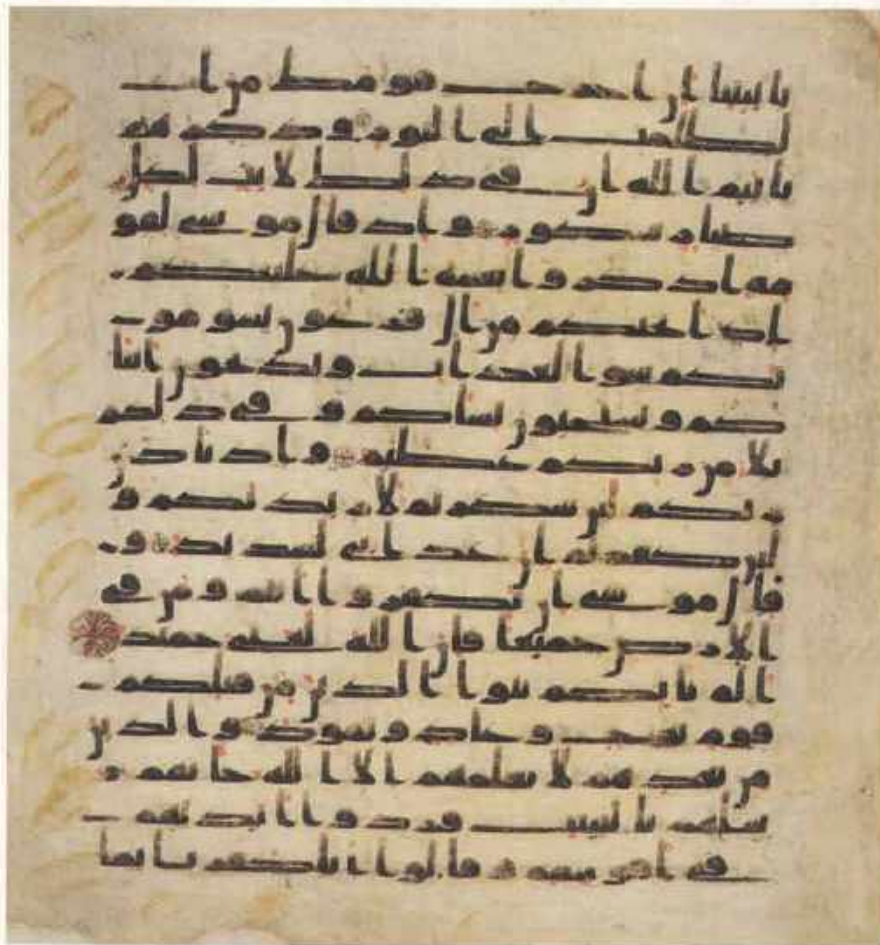 بايتنا ان اخرج قومك من ا
لظلمت الى النور وذكرهم
باييم الله ان في ذلك لايت لكل
صبار شكور واذ قال موسى لقو
مه اذكروا نعمة الله عليكم
اذ انجيكم من ال فرعون يسومو
نكم سوا العذاب ويذبحون ابنا
كم ويستحيون نساكم وفي ذلكم
بلا من ربكم عظيم واذ تاذن
ربكم لين شكرتم لازيدنكم و
لين كفرتم ان عذابي لشديد و
قال موسى ان تكفروا انتم ومن في
الارض جميعا فان الله لغني حميد
الم ياتكم نبوا الذين من قبلكم
قوم نوح وعاد وثمود والذين
من بعدهم لا يعلمهم الا الله جاتهم ر
سلهم بالبينت فردوا ايديهم
في افوههم وقالوا انا كفرنا بما